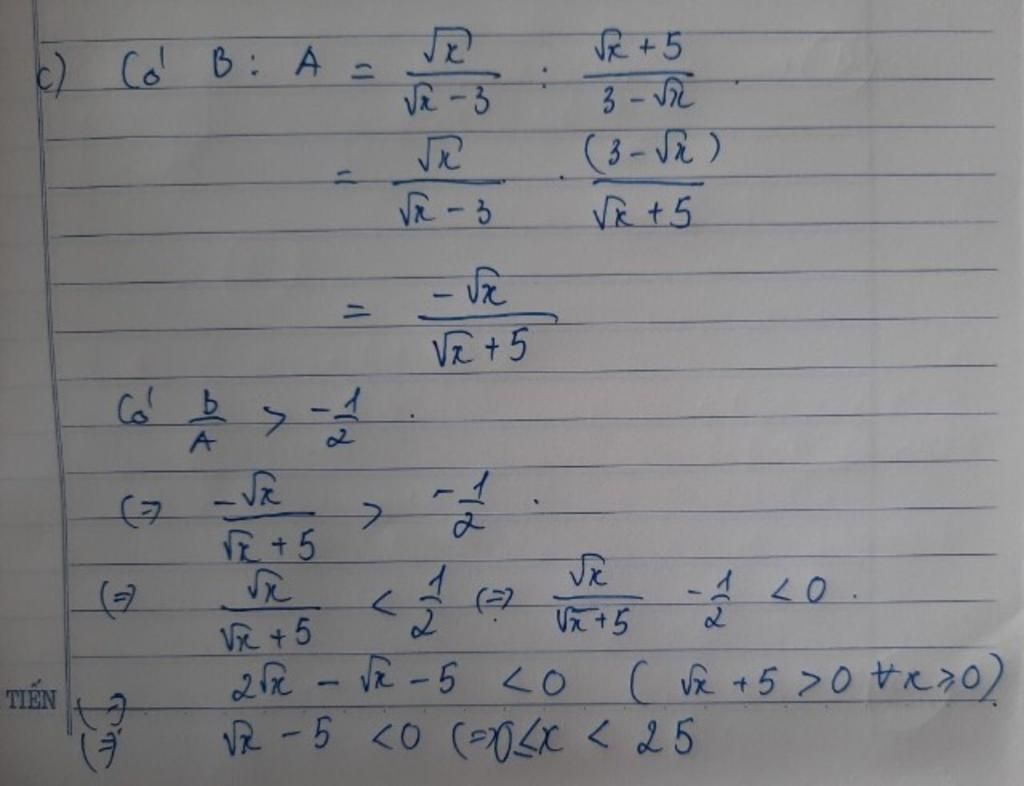 c) Có B : A = √x / (√x - 3) : (√x + 5) / (3 - √x) .
= √x / (√x - 3) . (3 - √x) / (√x + 5)
= -√x / (√x + 5)
Có B/A > -1/2 .
(=> -√x / (√x + 5) > -1/2 .
(=> √x / (√x + 5) < 1/2 (=> √x / (√x + 5) - 1/2 < 0 .
TIẾN (=> 2√x - √x - 5 < 0 ( √x + 5 > 0 ∀x ≥ 0)
(=> √x - 5 < 0 (=> 0 ≤ x < 25